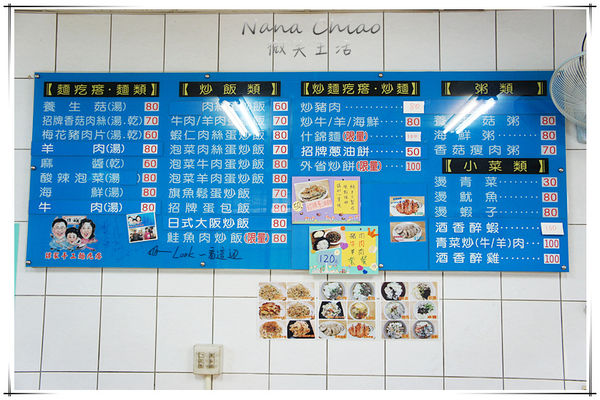 Nana Chiao
微笑生活
【麵疙瘩·麵類】
養生菇(湯) 80
招牌香菇肉絲(湯.乾) 70
梅花豬肉片(湯.乾) 60
羊肉(湯) 80
麻醬(乾) 60
酸辣泡菜(湯) 80
海鮮(湯) 80
牛肉(湯) 80
【炒飯類】
肉絲蛋炒飯 60
牛肉/羊肉炒飯 70
蝦仁肉絲蛋炒飯 80
泡菜肉絲蛋炒飯 70
泡菜牛肉蛋炒飯 80
泡菜羊肉蛋炒飯 80
旗魚鬆蛋炒飯 70
招牌蛋包飯 80
日式大阪炒飯 80
鮭魚肉炒飯(限量) 80
Look 看這邊
【炒麵疙瘩·炒麵】
炒豬肉 80
炒牛/羊/海鮮 80
什錦麵(限量) 100
招牌蔥油餅 50
外省炒餅(限量) 100
120
【粥類】
養菇粥 80
海鮮粥 80
香菇瘦肉粥 70
【小菜類】
燙青菜 30
燙魷魚 50
燙蝦子 50
酒香醉蝦 150
青菜炒(牛/羊)肉 100
酒香醉雞 100